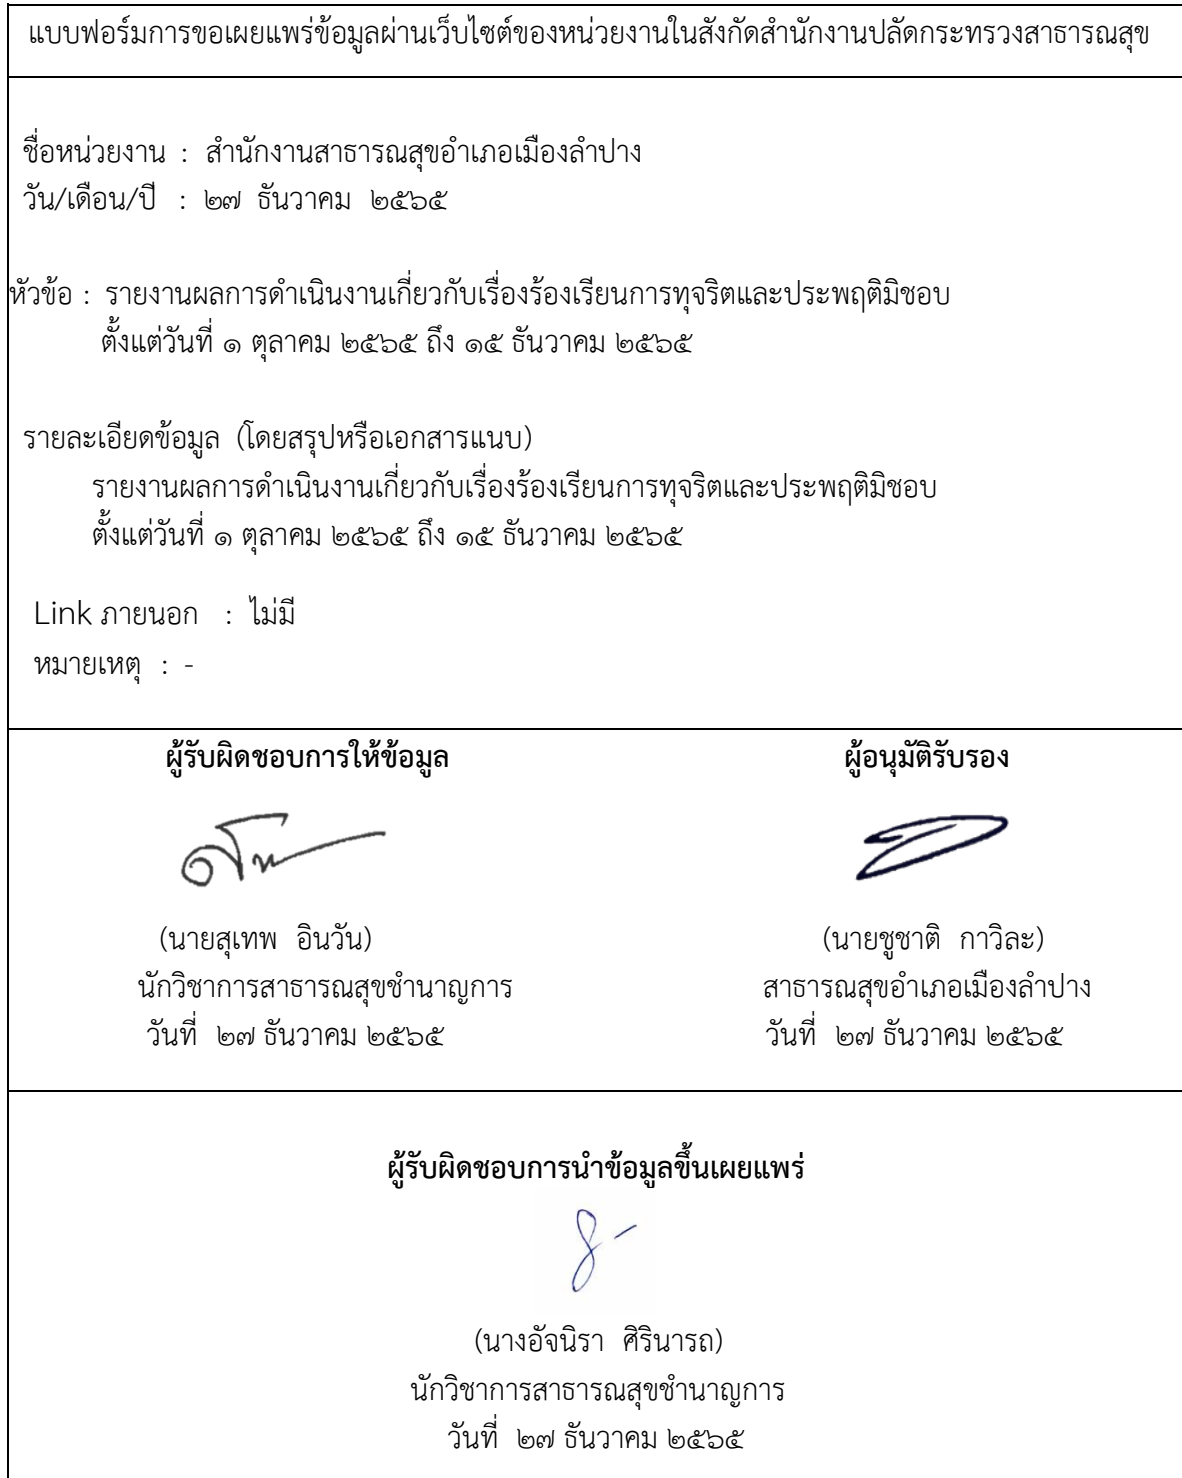 แบบฟอร์มการขอเผยแพร่ข้อมูลผ่านเว็บไซต์ของหน่วยงานในสังกัดสำนักงานปลัดกระทรวงสาธารณสุข
ชื่อหน่วยงาน : สำนักงานสาธารณสุขอำเภอเมืองลำปาง
วัน/เดือน/ปี : ๒๗ ธันวาคม ๒๕๖๕
หัวข้อ : รายงานผลการดำเนินงานเกี่ยวกับเรื่องร้องเรียนการทุจริตและประพฤติมิชอบ
ตั้งแต่วันที่ ๑ ตุลาคม ๒๕๖๕ ถึง ๑๕ ธันวาคม ๒๕๖๕
รายละเอียดข้อมูล (โดยสรุปหรือเอกสารแนบ)
รายงานผลการดำเนินงานเกี่ยวกับเรื่องร้องเรียนการทุจริตและประพฤติมิชอบ
ตั้งแต่วันที่ ๑ ตุลาคม ๒๕๖๕ ถึง ๑๕ ธันวาคม ๒๕๖๕
Link ภายนอก : ไม่มี
หมายเหตุ : -
ผู้รับผิดชอบการให้ข้อมูล ผู้อนุมัติรับรอง
(นายสุเทพ อินวัน) (นายชูชาติ กาวิละ)
นักวิชาการสาธารณสุขชำนาญการ สาธารณสุขอำเภอเมืองลำปาง
วันที่ ๒๗ ธันวาคม ๒๕๖๕ วันที่ ๒๗ ธันวาคม ๒๕๖๕
ผู้รับผิดชอบการนำข้อมูลขึ้นเผยแพร่
(นางอัจนิรา ศิรินารถ)
นักวิชาการสาธารณสุขชำนาญการ
วันที่ ๒๗ ธันวาคม ๒๕๖๕